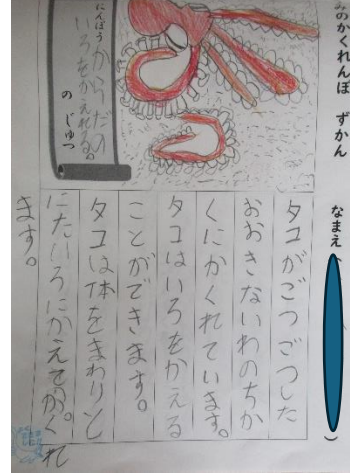 みのかくれんぼ ずかん
なまえ（ ）
にんぽう
からだの
いろをかえれる。
の じゅつ
タコがごつごつした
おおきないわのちか
くにかくれています。
タコはいろをかえる
ことができます。
タコは体をまわりと
にたいろにかえてかくれ
ます。